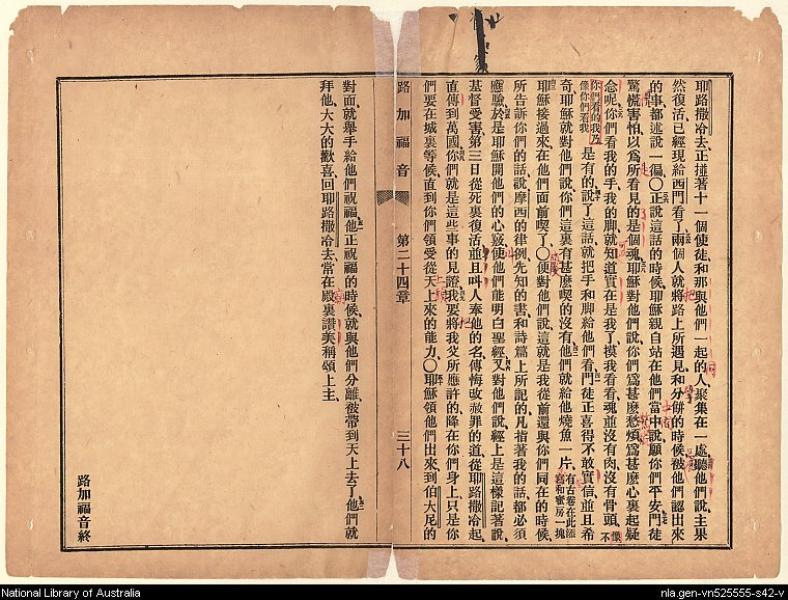 耶路撒冷去、正撞著十一個使徒和那與他們一起的人聚集在一處聽他們說、主果
然復活、已經現給西門看了、兩個人就將路上所遇見和分餅的時候被他們認出來
的事都述說一徧〇正說這話的時候耶穌親自站在他們當中說、願你們平安、門徒
驚慌害怕、以爲所看見的是個魂、耶穌對他們說、你們爲甚麼愁煩、爲甚麼心裏起疑
念呢、你們看我的手、我的脚、就知道實在是我了、摸我看看、魂並沒有肉沒有骨頭、不
像你們看我
你們看的我乃
是有的、說了這話、就把手和脚給他們看、門徒正喜得不敢實信、並且希
奇、耶穌就對他們說、你們這裏有甚麼喫的沒有、他們就給他燒魚一片、
有古卷在此添
寫和蜜房一塊
耶穌接過來、在他們面前喫了、〇便對他們說、這就是我從前還與你們同在的時候、
所告訴你們的話、說摩西的律例、先知的書、和詩篇上所記的、凡指著我的話、都必須
應驗、於是耶穌開他們的心竅、使他們能明白聖經、又對他們說、經上是這樣記著說、
基督受害、第三日從死裏復活、並且叫人奉他的名傳悔改赦罪的道、從耶路撒冷起、
直傳到萬國、你們就是這些事的見證、我要將我父所應許的降在你們身上、只是你
們要在城裏等候、直到你們領受從天上來的能力、〇耶穌領他們出來、到伯大尼的
路加福音 第二十四章 三十八
對面、就舉手給他們祝福、他正祝福的時候、就與他們分離、被帶到天上去了、他們就
拜他、大大的歡喜、回耶路撒冷去、常在殿裏讚美稱頌上主、
路加福音終
National Library of Australia
nla.gen-vn525555-s42-v